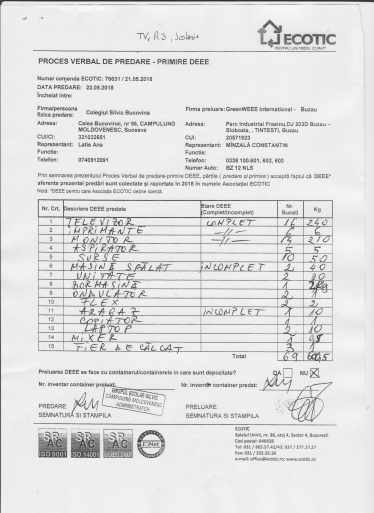 TV, R3,
ECOTIC
PENTRU UN MEDIU CURAT
PROCES VERBAL DE PREDARE - PRIMIRE DEEE
Numar comanda ECOTIC: 76631 / 21.05.2018
DATA PREDARE: 22.05.2018
Incheiat intre:
Firma/persoana fizica predare: Colegiul Silvic Bucovina
Firma preluare: GreenWEEE International - Buzau
Adresa: Calea Bucovinei, nr 56, CAMPULUNG MOLDOVENESC, Suceava
Adresa: Parc Industrial Frasinu, DJ 203D Buzau – Slobozia, , TINTESTI, Buzau
CUI/CI: 321032651
CUI: 20571923
Reprezentant: Latis Ana
Reprezentant: MÎNZALĂ CONSTANTIN
Functie:
Functie:
Telefon: 0740912091
Telefon: 0338 100.601, 602, 603
Numar Auto: BZ 12 NLS
Prin semnarea prezentului Proces Verbal de predare-primire DEEE, părțile ( predare și primire ) acceptă faptul că DEEE* aferente prezentei predări sunt colectate și raportate in 2018 in numele Asociației ECOTIC
Nr. Crt. Descriere DEEE predate Stare DEEE (Complet/Incomplet) Nr. Bucati Kg
1 TELEVIZOR COMPLET 16 240
2 IMPRIMANTE -//- 6 6
3 MONITOR -//- 14 210
4 ASPIRATOR 5 5
5 SURSE 10 50
6 MASINĂ SPĂLAT INCOMPLET 2 40
7 UNITATE 2 20
8 BORMASINĂ 1
9 ONDULATOR 2 1
10 FLEX 2 2
11 ARAGAZ INCOMPLET 1 10
12 COPIATOR 1 1
13 LAPTOP 2 10
14 MIXER 1
FIER DE CĂLCAT 3
Total 69
Preluarea DEEE se face cu containerul/containerele in care sunt depozitate? DA NU X
Nr. inventar container preluat:
Nr. inventar container predat:
PREDARE:
SEMNATURA SI STAMPILA
GRUPUL ȘCOLAR SILVIC
CAMPULUNG MOLDOVENESC
-ADMINISTRATOR-
PRELUARE:
SEMNATURA SI STAMPILA
SR AC
ISO 9001
SR AC
ISO 14001
SR AC
IQNet
ECOTIC
Splaiul Unirii, nr. 86, etaj 4, Sector 4, București
Cod postal: 040038
Fax: 021 / 232.32.36
e-mail: office@ecotic.ro; www.ecotic.ro